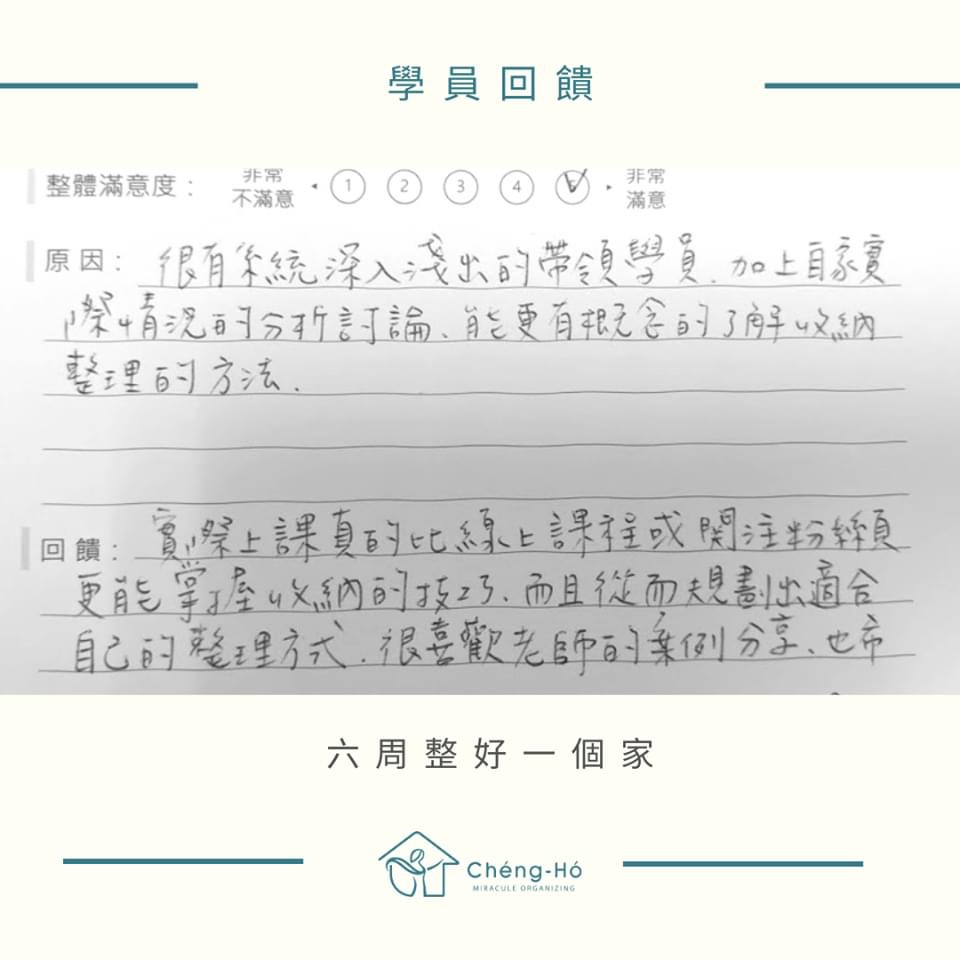 學員回饋
整體滿意度： 非常不滿意 ◂ 1 2 3 4 5 ▸ 非常滿意
原因： 很有系統深入淺出的帶領學員．加上自家實
際情況的分析討論、能更有概念的了解收納
整理的方法．
回饋： 實際上課真的比線上課程或関注粉絲頁
更能掌握收納的技巧、而且從而規劃出適合
自己的整理方式．很喜歡老師的案例分享、也希
六周整好一個家
Chéng-Hó
MIRACULE ORGANIZING